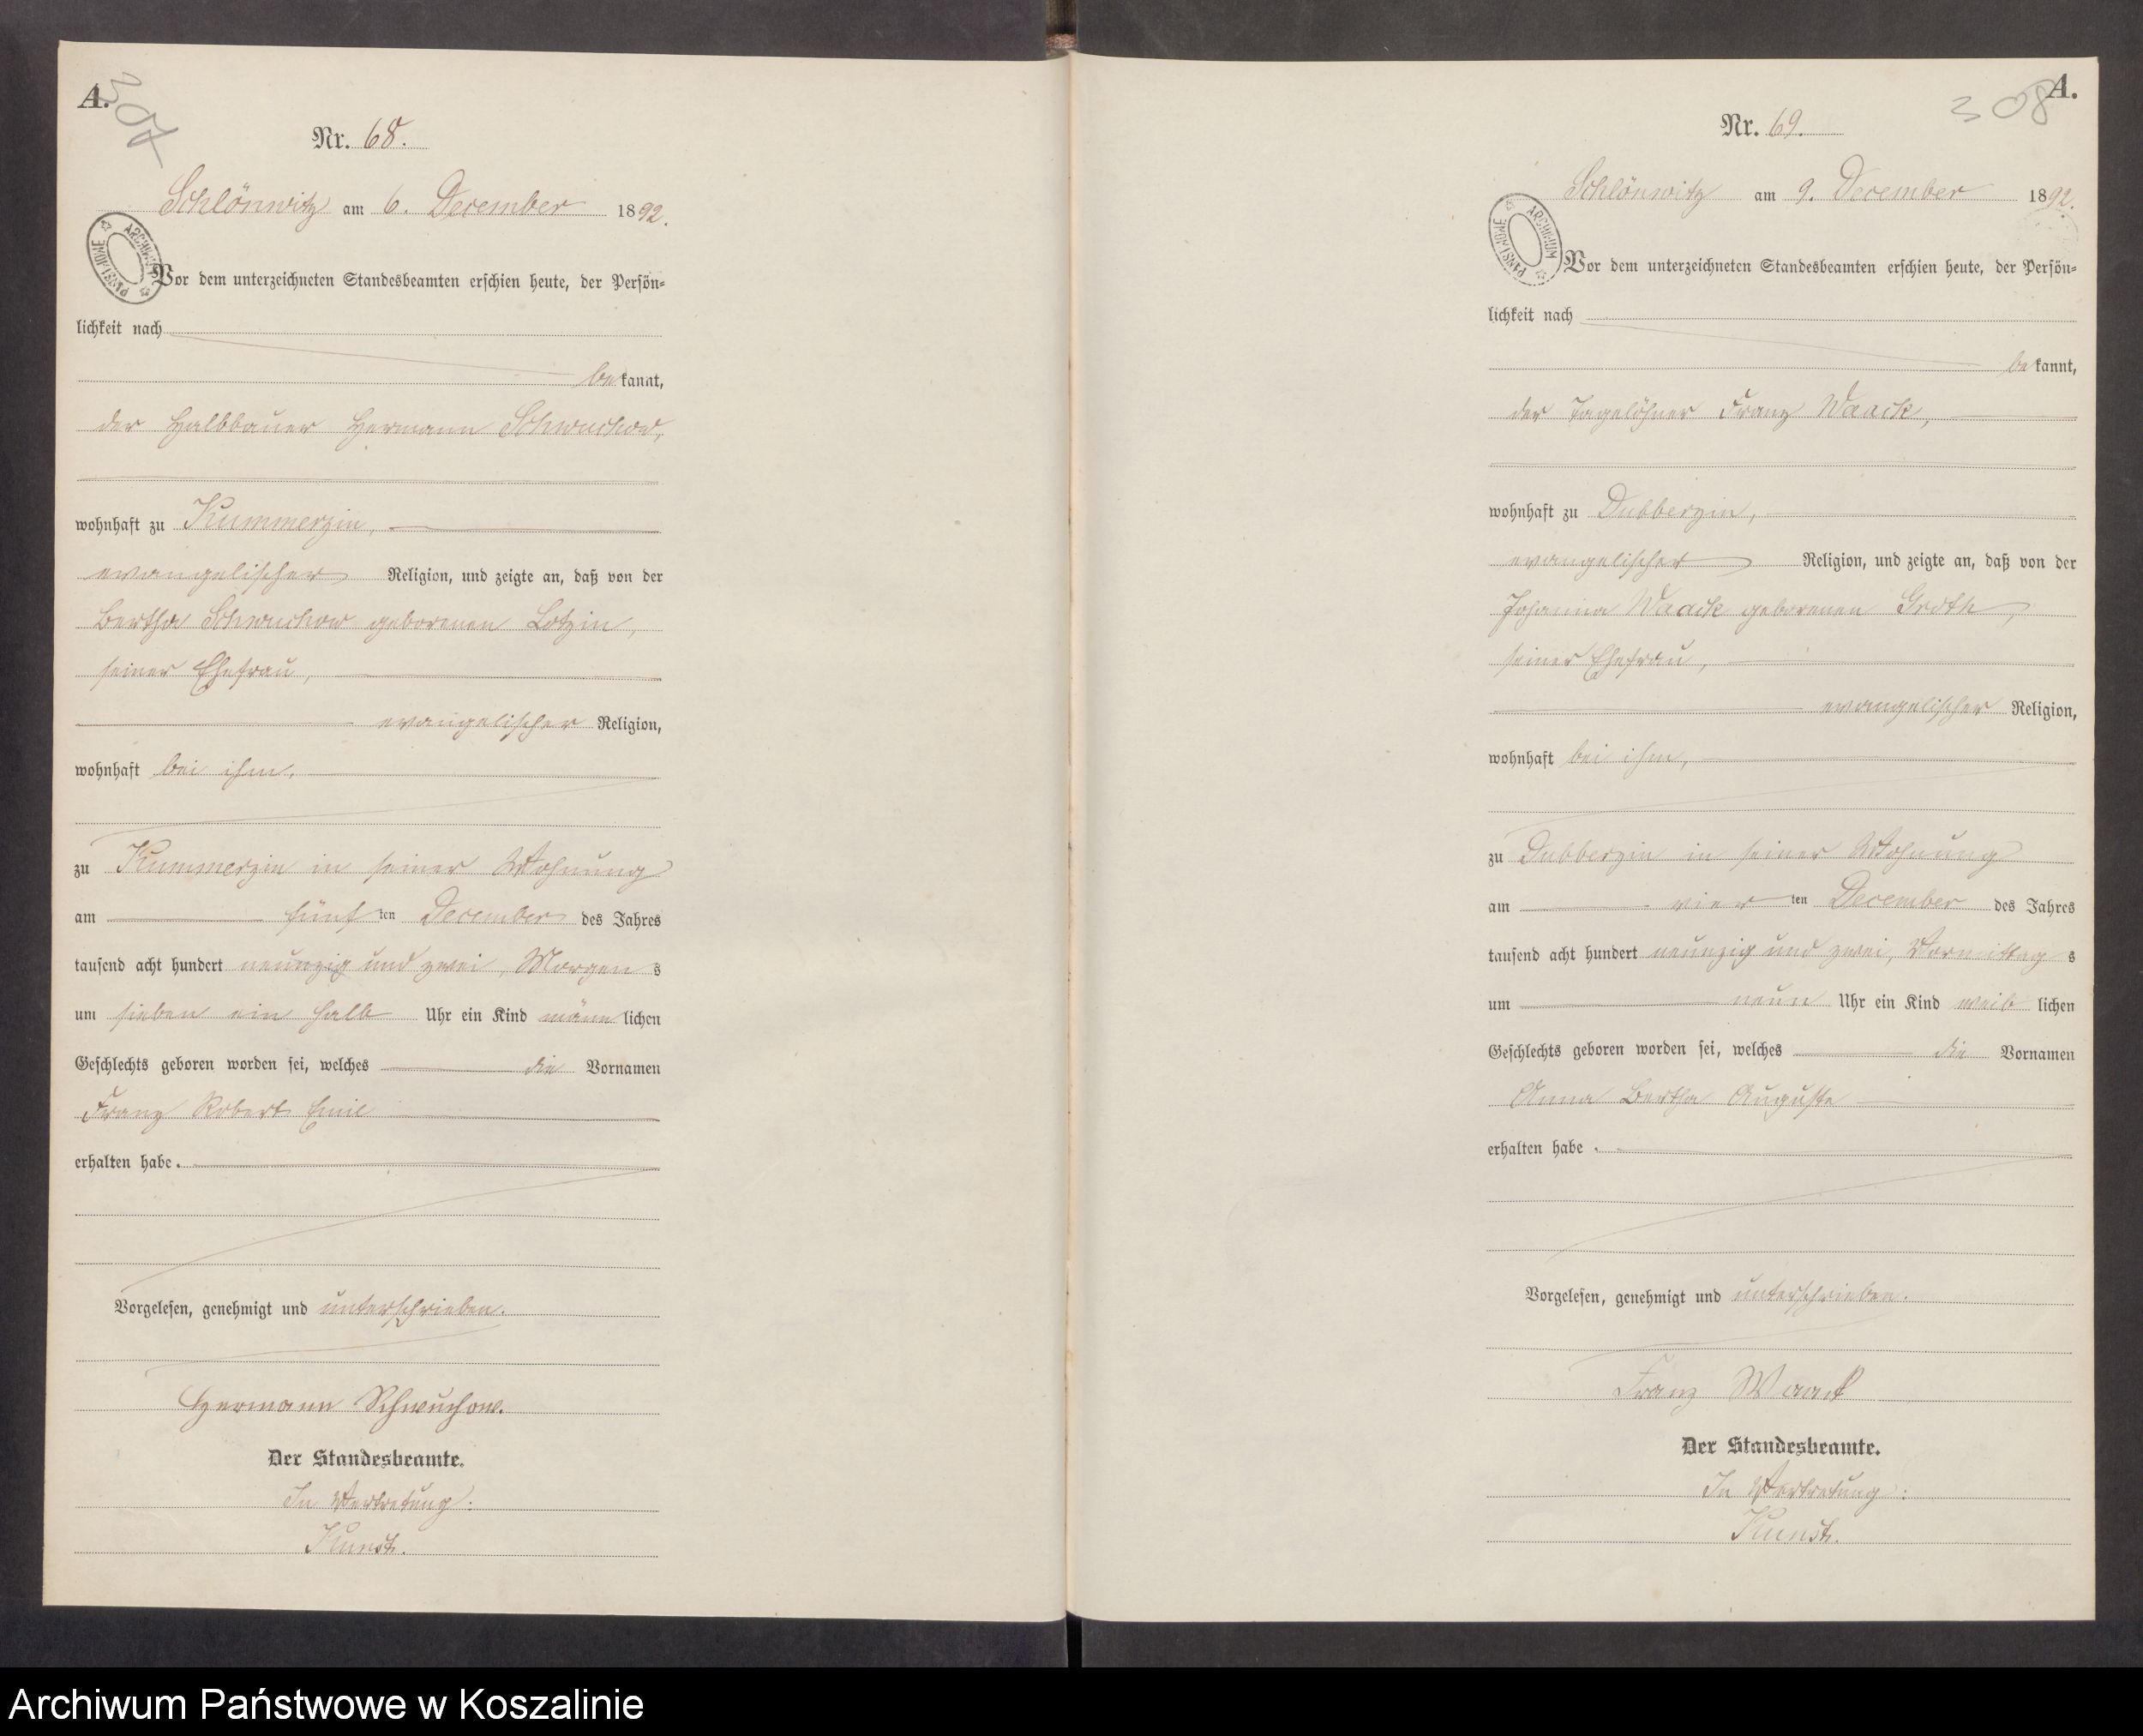 A.
307
Nr. 68.
Schlönwitz am 6. December 1892.
ARCHIWUM PAŃSTWOWE
Vor dem unterzeichneten Standesbeamten erschien heute, der Persön=
lichkeit nach
be kannt,
der Halbbauer Hermann Schwuchow,
wohnhaft zu Kummerzin,
evangelischer Religion, und zeigte an, daß von der
Bertha Schwuchow geborenen Lotzin,
seiner Ehefrau,
evangelischer Religion,
wohnhaft bei ihm,
zu Kummerzin in seiner Wohnung
am fünf ten December des Jahres
tausend acht hundert neunzig und zwei, Morgen s
um sieben ein halb Uhr ein Kind männ lichen
Geschlechts geboren worden sei, welches die Vornamen
Franz Robert Emil
erhalten habe.
Vorgelesen, genehmigt und unterschrieben.
Hermann Schwuchow.
Der Standesbeamte.
In Vertretung:
Kunst.
A.
308
Nr. 69.
Schlönwitz am 9. December 1892.
ARCHIWUM PAŃSTWOWE
Vor dem unterzeichneten Standesbeamten erschien heute, der Persön=
lichkeit nach
be kannt,
der Tagelöhner Franz Waack,
wohnhaft zu Dubberzin,
evangelischer Religion, und zeigte an, daß von der
Johanna Waack geborenen Groth,
seiner Ehefrau,
evangelischer Religion,
wohnhaft bei ihm,
zu Dubberzin in seiner Wohnung
am vier ten December des Jahres
tausend acht hundert neunzig und zwei, Vormittag s
um neun Uhr ein Kind weib lichen
Geschlechts geboren worden sei, welches die Vornamen
Anna Bertha Auguste
erhalten habe.
Vorgelesen, genehmigt und unterschrieben.
Franz Waack
Der Standesbeamte.
In Vertretung:
Kunst.
Archiwum Państwowe w Koszalinie